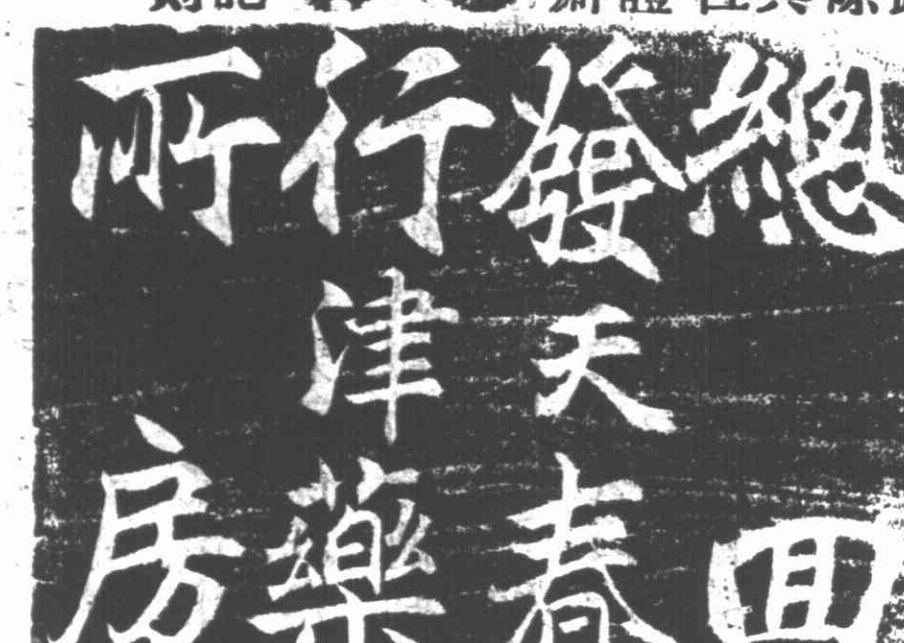 總發行所
天津
回春藥房